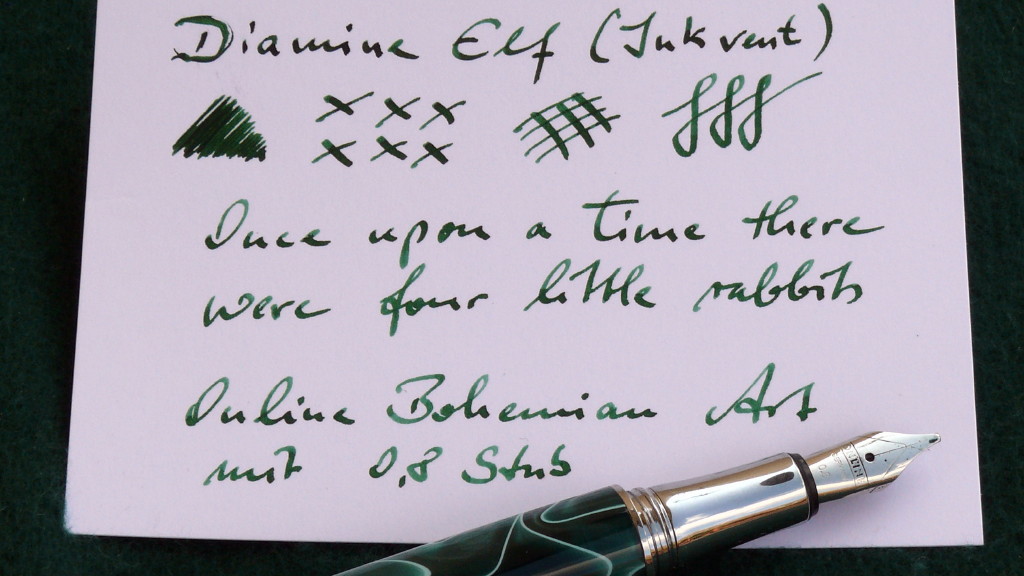 Diamine Elf (Inkvent)
Once upon a time there
were four little rabbits
Online Bohemian Art
mit 0,8 Stub